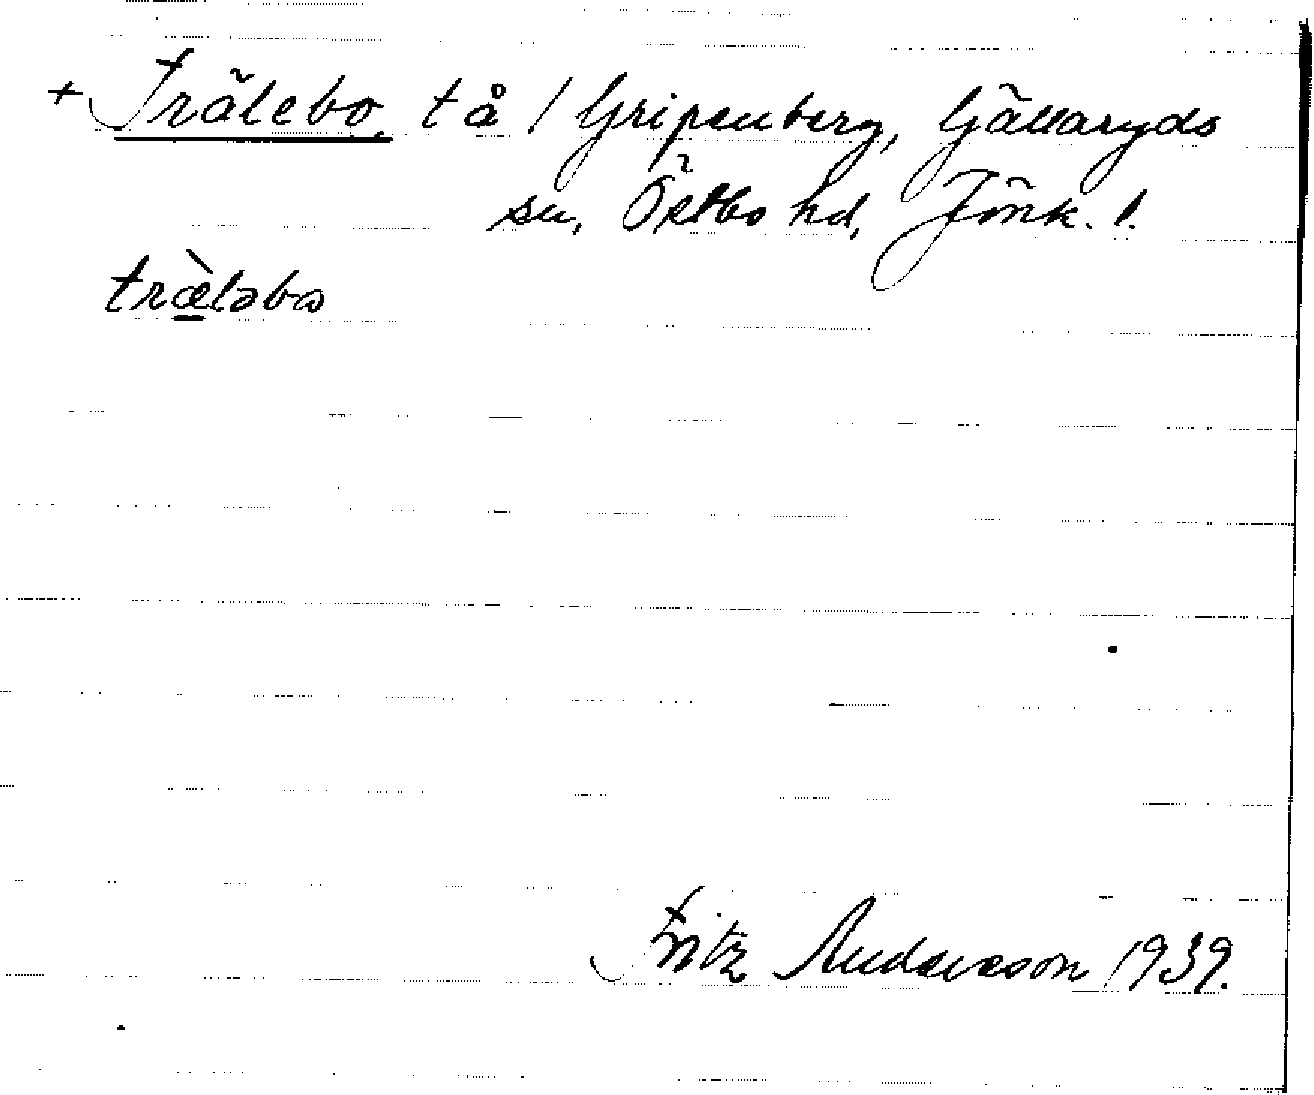 + Trälebo, tå / Gripenberg, Gällaryds
sn, Östbo hd, Jönk. l.
træ̀ləbω
Fritz Andersson 1939.